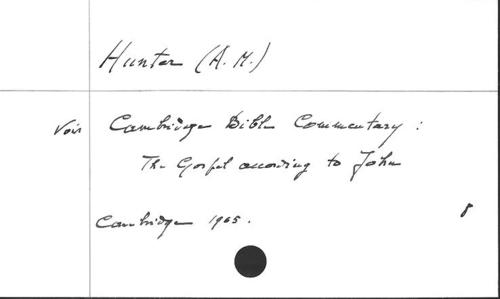 Hunter (A.M.)
Voir Cambridge Bible Commentary :
The Gospel according to John
Cambridge 1965.
8